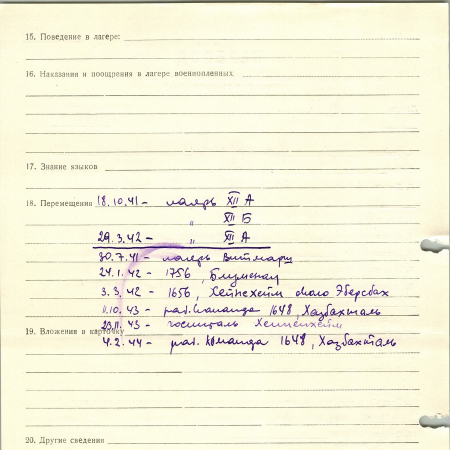 15. Поведение в лагере:
16. Наказания и поощрения в лагере военнопленных
17. Знание языков
18. Перемещения 18.10.41 - лагерь XII А
" XII Б
29.3.42 - " XII А
30.7.41 - лагерь Витмарш
24.1.42 - 1756,
3.3.42 - 1656, около Эберсбах
11.10.43 - раб. команда 1648, Хазбахталь
23.11.43 - госпиталь Хеппенхейм
19. Вложения в карточку
4.2.44 - раб. команда 1648, Хазбахталь
20. Другие сведения